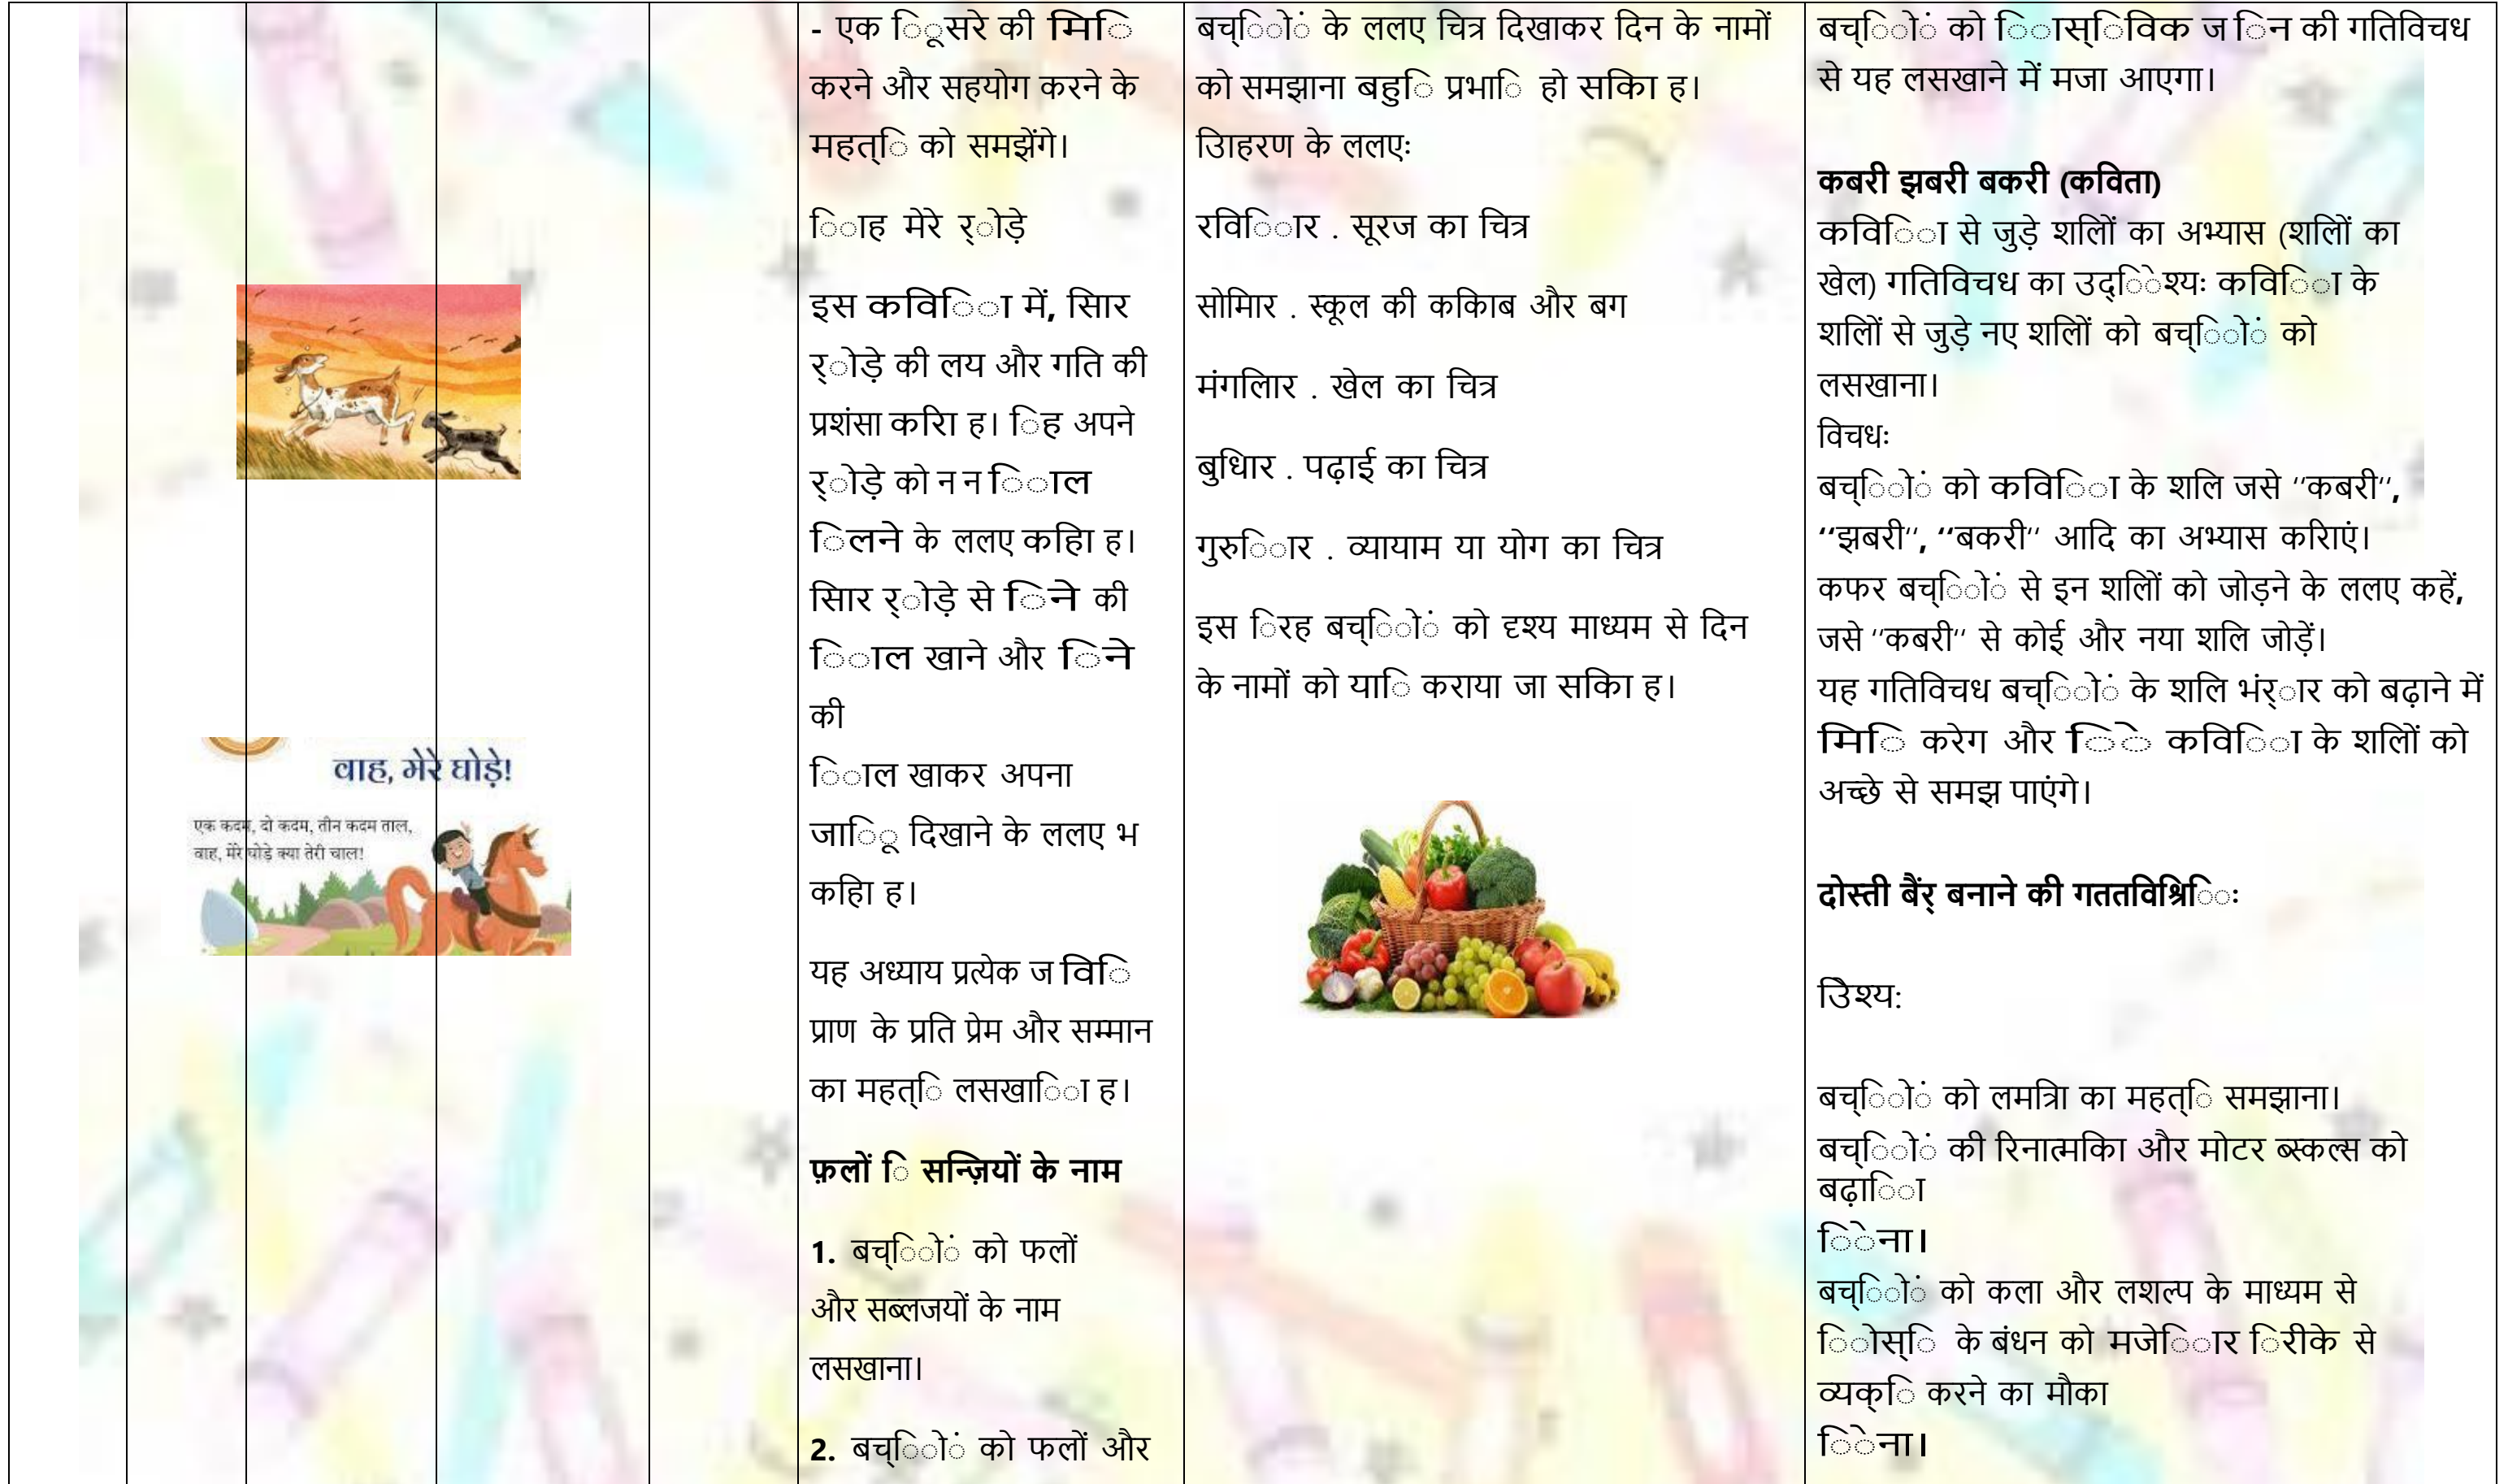 वाह, मेरे घोड़े!
एक कदम, दो कदम, तीन कदम ताल,
वाह, मेरे घोड़े क्या तेरी चाल!
- एक िूसरे की मिि
करने और सहयोग करने के
महत्ि को समझेंगे।
िाह मेरे र्ोड़े
इस कविििा में, सिार
र्ोड़े की लय और गति की
प्रशंसा करिा ह। िह अपने
र्ोड़े को न न िाल
िलने के ललए कहिा ह।
सिार र्ोड़े से िने की
िाल खाने और िने
की
िाल खाकर अपना
जािू दिखाने के ललए भ
कहिा ह।
यह अध्याय प्रत्येक ज विि
प्राण के प्रति प्रेम और सम्मान
का महत्ि लसखािा ह।
फ़लों ि सन्ज़ियों के नाम
1. बच्िों को फलों
और सब्लजयों के नाम
लसखाना।
2. बच्िों को फलों और
बच्िों के ललए चित्र दिखाकर दिन के नामों
को समझाना बहुि प्रभाि हो सकिा ह।
उिाहरण के ललएः
रवििार . सूरज का चित्र
सोमिार . स्कूल की ककिाब और बग
मंगलिार . खेल का चित्र
बुधिार . पढ़ाई का चित्र
गुरुिार . व्यायाम या योग का चित्र
इस िरह बच्िों को दृश्य माध्यम से दिन
के नामों को याि कराया जा सकिा ह।
बच्िों को िास्िविक ज िन की गतिविचध
से यह लसखाने में मजा आएगा।
कबरी झबरी बकरी (कविता)
कविििा से जुड़े शलिों का अभ्यास (शलिों का
खेल) गतिविचध का उद्िेश्यः कविििा के
शलिों से जुड़े नए शलिों को बच्िों को
लसखाना।
विचधः
बच्िों को कविििा के शलि जसे ‘‘कबरी‘‘,
‘‘झबरी‘‘, ‘‘बकरी‘‘ आदि का अभ्यास करिाएं।
कफर बच्िों से इन शलिों को जोड़ने के ललए कहें,
जसे ‘‘कबरी‘‘ से कोई और नया शलि जोड़ें।
यह गतिविचध बच्िों के शलि भंर्ार को बढ़ाने में
मिि करेग और िे कविििा के शलिों को
अच्छे से समझ पाएंगे।
दोस्ती बैंर् बनाने की गततविश्रिः
उिेश्य:
बच्िों को लमत्रिा का महत्ि समझाना।
बच्िों की रिनात्मकिा और मोटर ब्स्कल्स को
बढ़ािा
िेना।
बच्िों को कला और लशल्प के माध्यम से
िोस्ि के बंधन को मजेिार िरीके से
व्यक्ि करने का मौका
िेना।